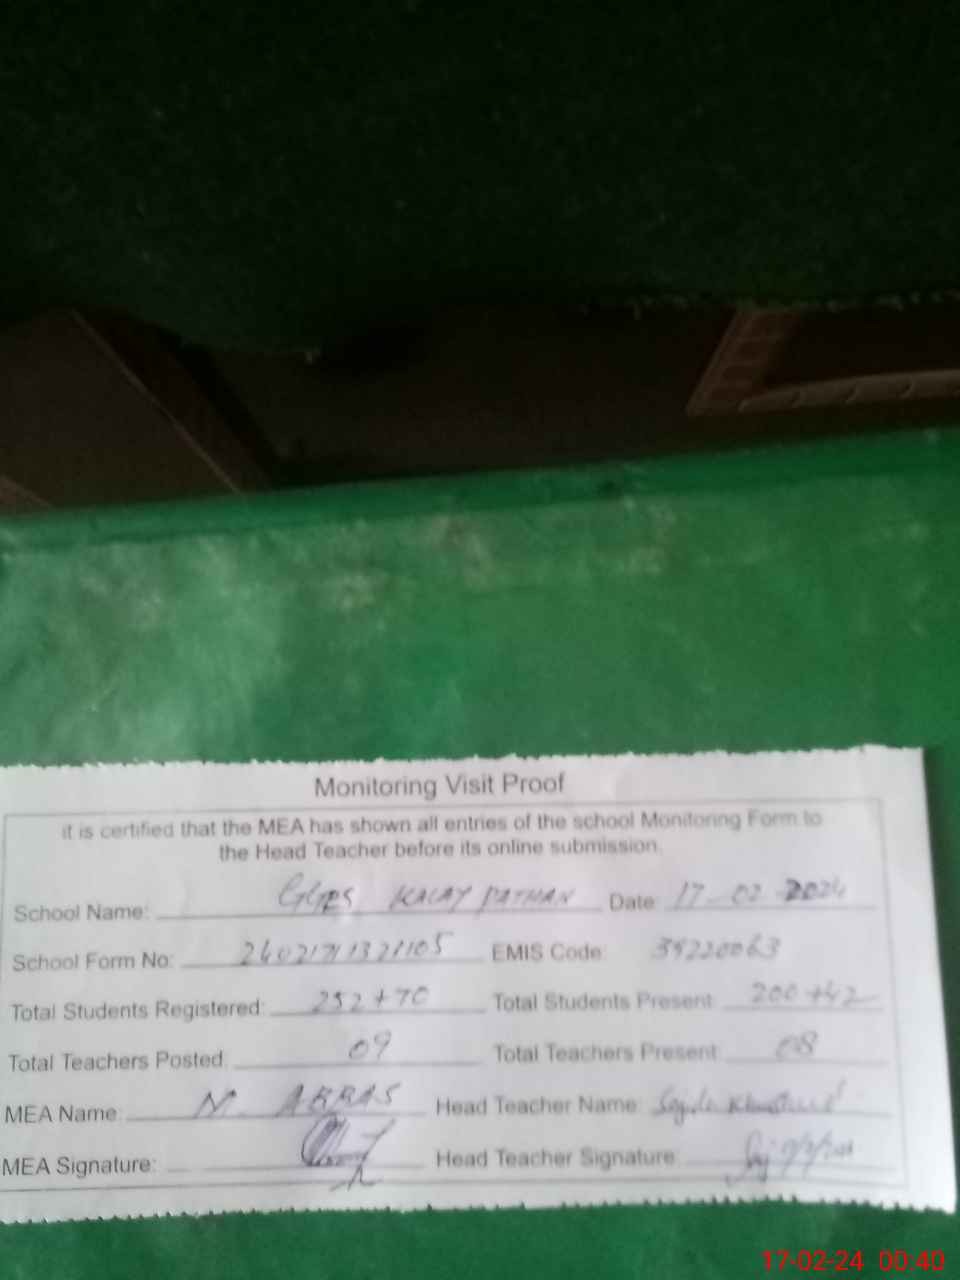 Monitoring Visit Proof
it is certified that the MEA has shown all entries of the school Monitoring Form to
the Head Teacher before its online submission.
School Name: GGPS KALAY PATHAN Date: 17-02-2024
School Form No: EMIS Code:
Total Students Registered: 252+70 Total Students Present: 200+42
Total Teachers Posted: 09 Total Teachers Present: 08
MEA Name: M. ABBAS Head Teacher Name: Sajida
MEA Signature: Head Teacher Signature:
17-02-24 00:40